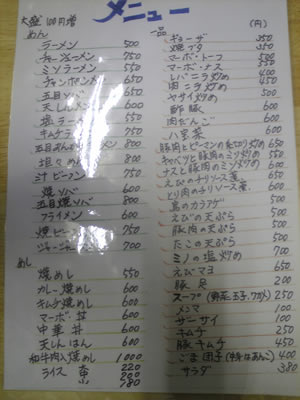 メニュー
大盛 100円増
(円)
めん
ラーメン 500
チャーシューメン 750
ミソラーメン 550
チャンポンメン 650
五目ソバ 650
天しんメン 600
塩ラーメン 550
キムチラーメン
五目あんかけラーメン 800
坦々めん 800
汁ビーフン 750
焼ソバ 600
五目焼ソバ 800
フライメン 600
焼ビーフン 750
ジャージャーメン 700
めし
焼めし 550
カレー焼めし 600
キムチ焼めし 600
マーボ丼 600
中華丼 600
天しんはん 600
和牛肉入焼めし 1,000
ライス 大 220
180
一品
ギョーザ 350
焼ブタ 350
マーボ・トーフ 500
マーボ・ナス
レバニラ炒め 400
肉ニラ炒め 450
ヤサイ炒め 500
酢豚 600
肉だんご 600
八宝菜 600
豚肉とピーマンの細切り炒め 650
キャベツと豚肉のミソ炒め 550
ナスと豚肉のミソ炒め 600
えびのチリソース煮 650
とり肉のチリソース煮 600
鳥のカラアゲ 500
えびの天ぷら 500
豚肉の天ぷら 500
たこの天ぷら 500
ミノの塩炒め 700
えびマヨ 650
豚足 200
スープ (野菜、玉子、ワカメ) 250
メンマ 100
ザーサイ 100
キムチ 250
豚キムチ 450
ごま団子 (中身はあんこ) 400
サラダ 380